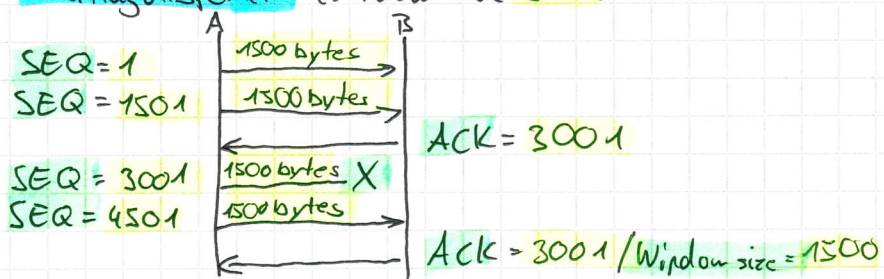 A B
SEQ=1 1500 bytes
SEQ = 1501 1500 bytes
ACK = 3001
SEQ = 3001 1500 bytes X
SEQ = 4501 1500 bytes
ACK = 3001 / Window size = 1500